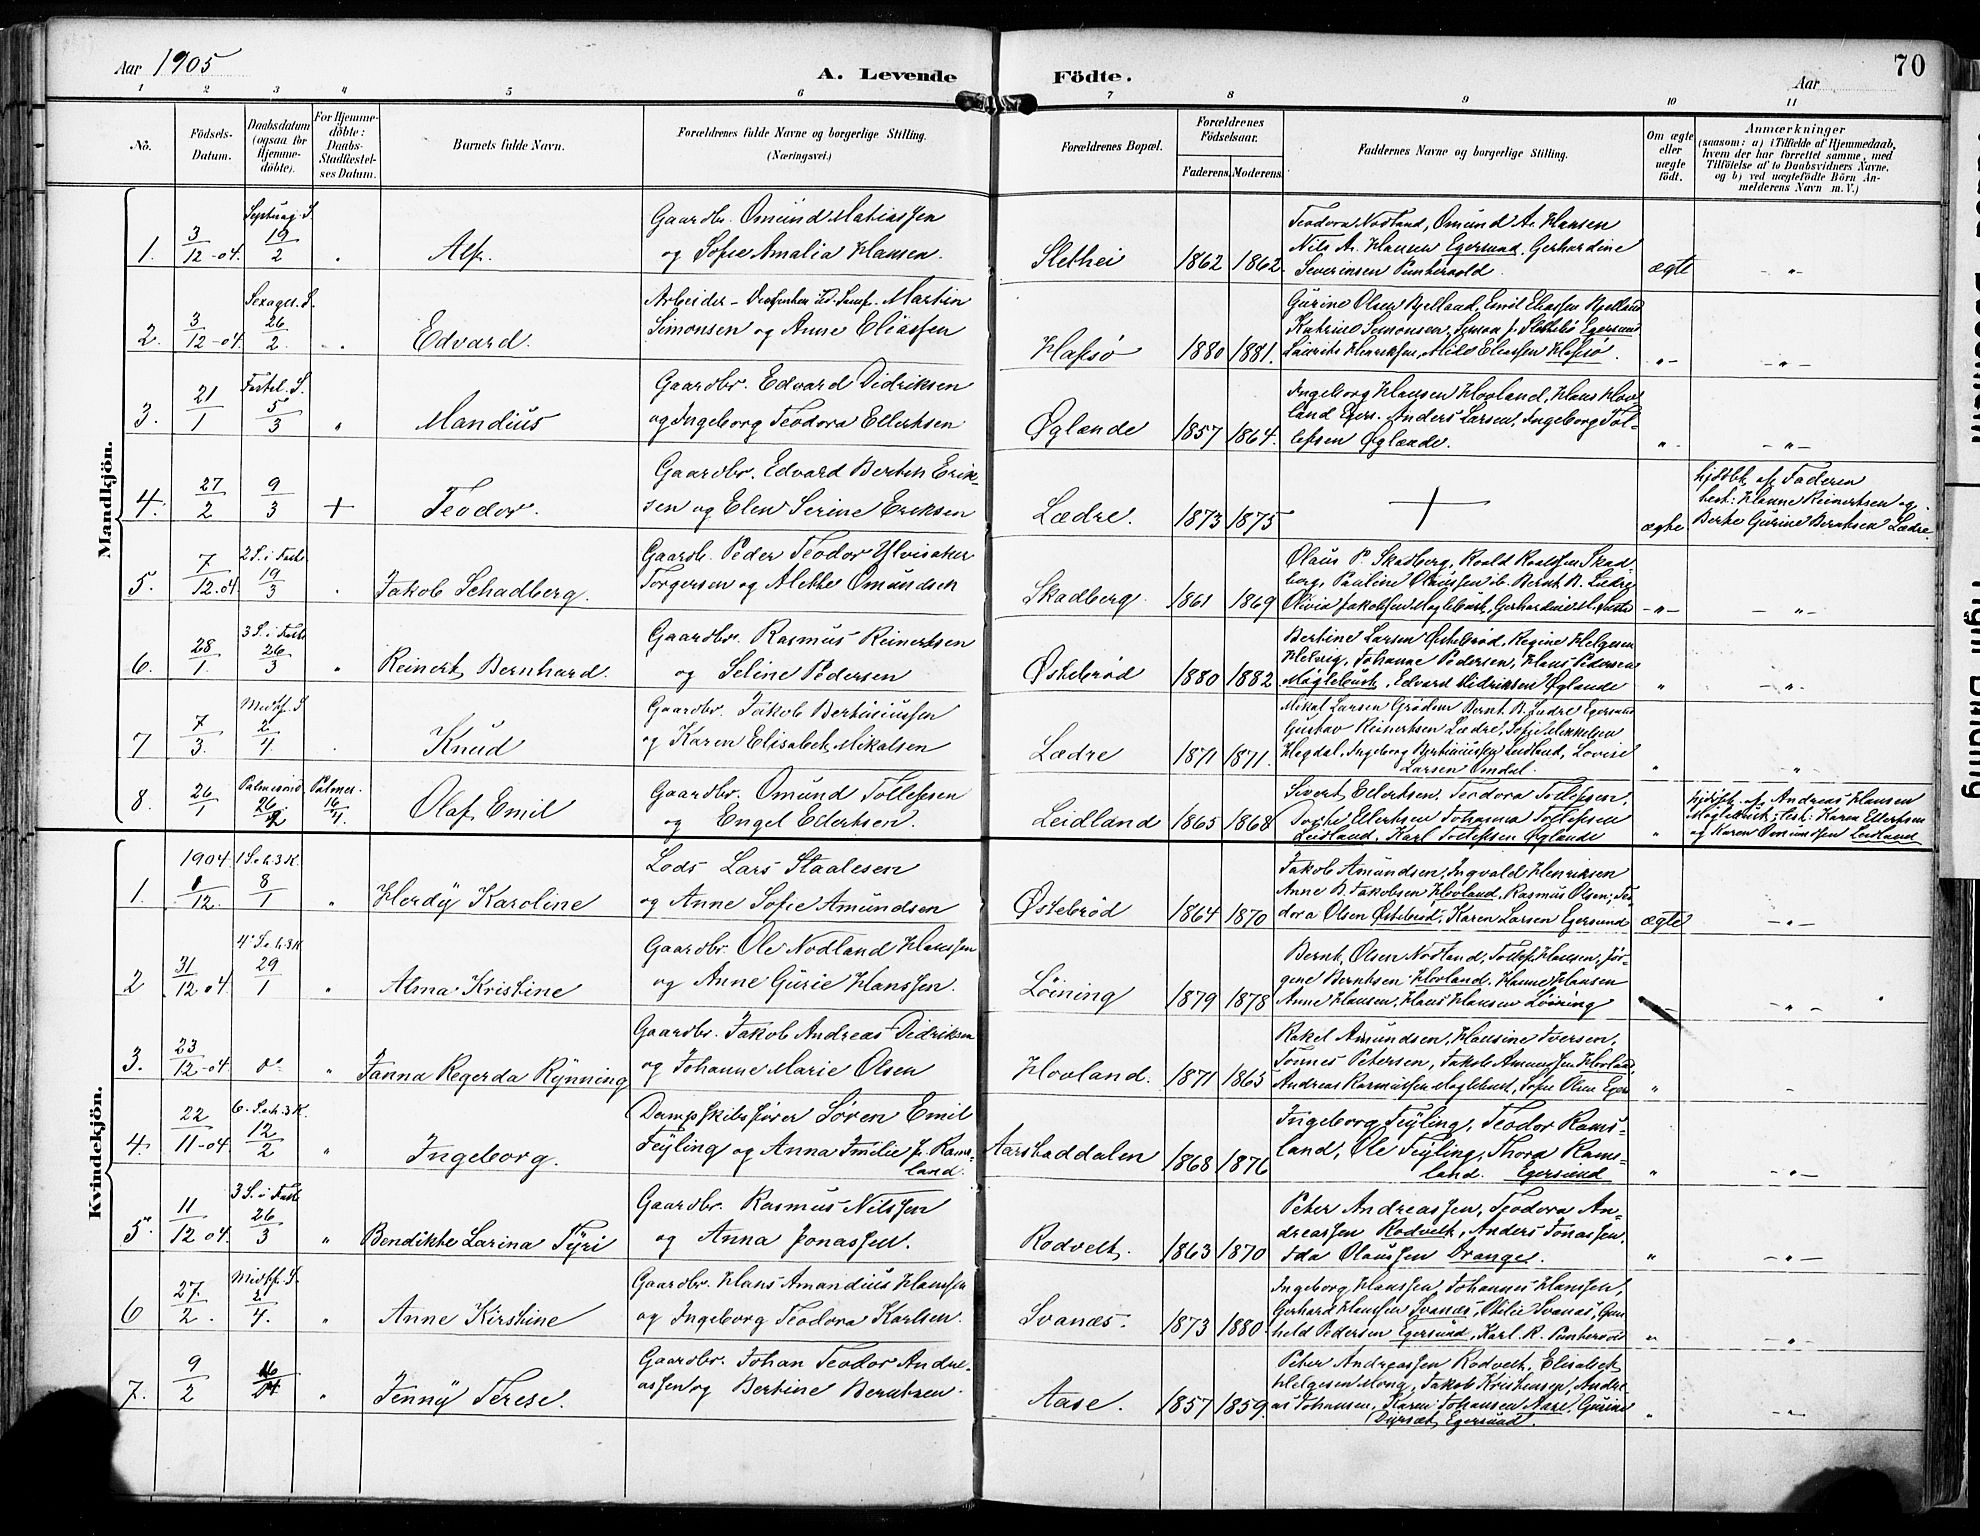 Aar 1905
A. Levende Födte.
Aar
70
1 2 3 4 5 6 7 8 9 10 11
No.
Födsels-Datum.
Daabsdatum (ogsaa for Hjemmedöbte).
For Hjemmedöbte: Daabs-Stadfæstelses Datum.
Barnets fulde Navn.
Forældrenes fulde Navne og borgerlige Stilling.
(Næringsvei.)
Forældrenes Bopæl.
Forældrenes Födselsaar.
Faderens. Moderens.
Faddernes Navne og borgerlige Stilling.
Om ægte eller uægte födt.
Anmærkninger
(saasom: a) i Tilfælde af Hjemmedaab, hvem der har forrettet samme, med Tilföielse af to Daabsvidners Navne, og b) ved uægtefödte Börn Anmelderens Navn m. V.)
Mandkjön.
1. 3/12-04. Septuag. S. 19/2 " Alf. Gaardbr. Omund Matiassen
og Sofie Amalia Hansen. Slethei 1862 1862. Teodora Nodland, Omund A. Hansen
Nils A. Hansen Egersund. Gerhardine
Severinsen Puntervold. ægte -"-
2. 3/12-04. Sexages. S. 26/2. " Edvard. Arbeider - Martin
Simonsen og Anne Eliassen Hafsö 1880 1881. Gurine Olsen Bjelland, Emil Eliassen Bjelland
Katrine Simonsen, Slettebö Egersund
Laurits Henriksen, Eliassen Hafsö. -"- -"-
3. 21/1 Fastel. S. 5/3 " Mandius Gaardbr. Edvard Didriksen
og Ingeborg Teodora Ellertsen Øglænde 1857 1864. Ingeborg Hansen Hovland, Hans Hov-
land Egers. Anders Larsen, Ingeborg Tol-
lefsen Øglænde. " -"-
4. 27/2 9/3 + Teodor. Gaardbr. Edvard Bertin Erik-
sen og Elen Serine Eriksen Lædre. 1873 1875 + ægte hjdöbt af Faderen
test: Hanne Reinertsen og
Berte Gurine Berntsen Lædre.
5. 7/12.04. 2 S. i Faste 19/3 " Jakob Schadberg. Gaardb. Peder Teodor Ylvisaker
Torgersen og Alette Omundsen Skadberg. 1861 1869 Olaus P. Skadberg, Roald Roaldsen Skad-
berg, Pauline Olaussen ib. Bernt B. Lædre
Olivia Jakobsen Maglebust, Gerhardine -"- -"-
6. 28/1. 3 S. i Faste 26/3 " Reinert Bernhard. Gaardbr. Rasmus Reinertsen
og Seline Pedersen Østebröd 1880 1882 Bertine Larsen Østebröd, Regine Helgesen
Helvig, Johanne Pedersen, Hans Pedersen
Maglebust, Edvard Didriksen Øglænde " -"-
7 7/3. Midtf. S 2/4. " Knud Gaardbr. Jakob Bertiniussen
og Karen Elisabet Mikalsen Lædre 1871 1871. Mikal Larsen Grödem Bernt B. Lædre Egersund
Gustav Reinertsen Lædre, Sofie Mikkelsen
Hegdal, Ingeborg Bertiniussen Leidland, Lovise
Larsen Omdal. " "
8. 26/1 Palmesönd. 26/2 Palmes. 16/4. Olaf Emil Gaardbr. Omund Tollefsen
og Engel Ellertsen. Leidland 1865 1868 Sivert Ellertsen, Teodora Tollefsen,
Ellertsen Johanna Tollefsen
Leidland, Karl Tollefsen Øglænde " hjdöbt af Andreas Hansen
Maglebust; test: Karen Ellertsen
og Karen Omundsen Leidland
Kvindekjön.
1. 1904. 1/12. 1 S. e. h. 3 K. 8/1 " Herdy Karoline Lods Lars Staalesen
og Anne Sofie Amundsen Østebröd 1864 1870 Jakob Amundsen, Ingvald Henriksen
Anne B. Jakobsen Hovland, Rasmus Olsen, Teo-
dora Olsen Østebröd, Karen Larsen Egersund ægte -"-
2 31/12 04. 4 S. e. h. 3 K. 29/1 " Alma Kristine Gaardbr. Ole Nodland Hanssen
og Anne Gurie Hanssen. Löining 1879 1878 Bernt Olsen Nodland, Tollef Hansen, Jör-
gine Berntsen Hovland, Hanne Hansen
Anne Hansen, Hans Hansen Löining -"-
3. 23/12-04. do " Janna Regerda Rynning Gaardbr. Jakob Andreas Didriksen
og Johanne Marie Olsen Hovland. 1871 1865 Rakel Amundsen, Hansine Iversen,
Tonnes Petersen, Jakob Amundsen Hovland,
Andreas Rasmussen Maglebust, Sofie Olsen Eger " "
4. 22/11-04. 6. S. e. h. 3 K. 12/2 " Ingeborg. Dampskibsförer Sören Emil
Feyling og Anna Emilie f. Rams-
land. Aarstaddalen 1868 1876 Ingeborg Feyling, Teodor Rams-
land, Ole Feyling, Thora Rams-
land. Egersund " -"-
5. 11/12 04. 3 S. i Faste 26/3 " Bendikte Larina Fyri Gaardbr. Rasmus Nilssen
og Anna Jonassen. Rodvelt. 1863 1870 Peter Andreassen, Teodora An-
dreassen Rodvelt, Anders Jonassen,
Ida Olaussen Drange. " -"-
6 27/2. Midtf. S 2/4. " Anne Kirstine Gaardbr. Hans Amandius Hanssen
og Ingeborg Teodora Karlsen. Svanæs. 1873 1880. Ingeborg Hanssen, Johannes Hanssen,
Gerhard Hanssen Svanæs, Otilie Svanæs, Gun-
hild Pedersen Egersund, Karl R. Puntervold " -"-
7. 9/2 16/4 " Jenny Terese. Gaardbr. Johan Teodor Andre-
assen og Bertine Berntsen. Aase. 1857 1859. Peter Andreassen Rodvelt, Elisabet
Helgesen Mong, Jakob Kristensen, Andre-
as Johansen, Karen Johansen Aase, Gurine
Egersund. " -"-